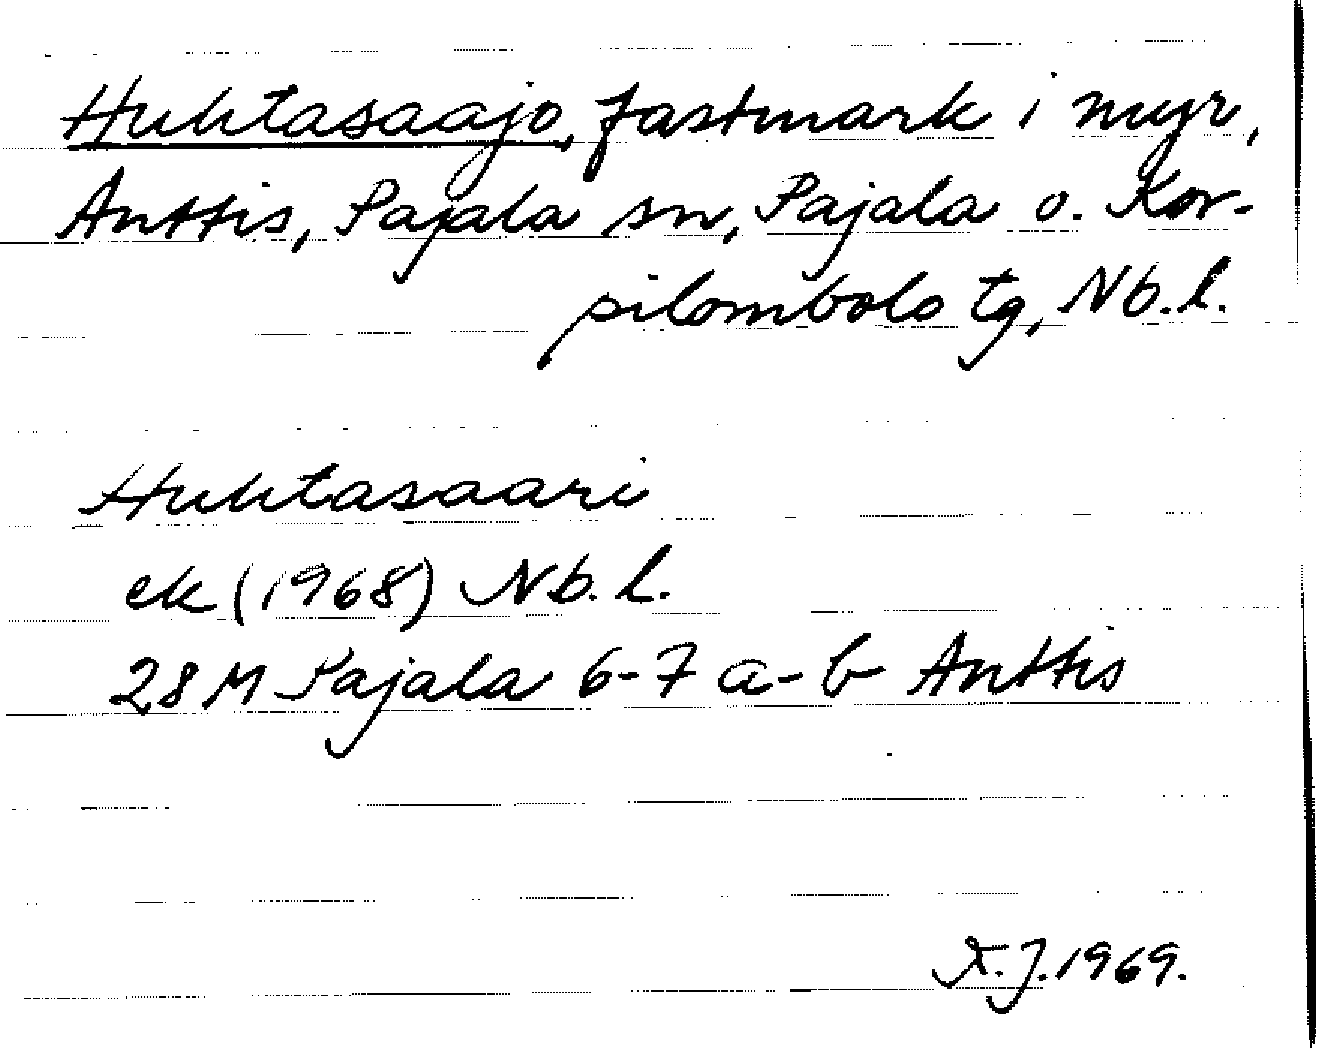 Huhtasaajo, fastmark i myr,
Anttis, Pajala sn, Pajala o. Kor-
pilombolo tg, Nb.l.
Huhtasaari
ek (1968) Nb.l.
28 M Pajala 6-7 a-b Anttis
X.J.1969.